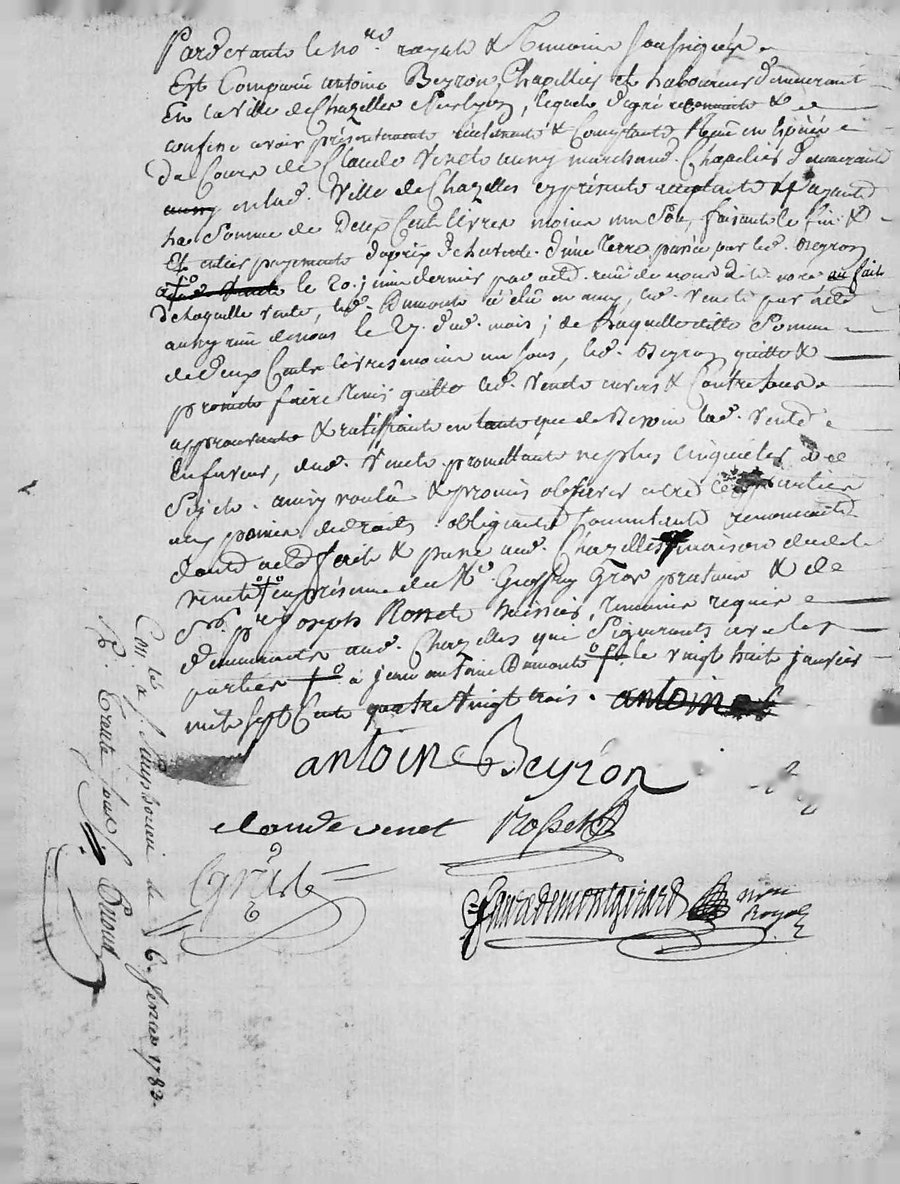 Pardevant le no.re royal & temoins soussignés
Est Comparu antoine Beyron Chapellier et laboureur demeurant
En la Ville de Chazelles sur lyon, lequel de gré reconnait &
confesse avoir présentement reellement & comptant Reçu en
du Cours de Claude Venet aussy marchand Chapelier demeurant
en lad. Ville de Chazelles cy présent acceptant & payant
la Somme de Deux Cent livres moins un Sou, faisant le fin &
Et entier payement du prix d'une terre passée par led. Beyron
le 20. juin dernier par acte reçu de nous dit no.re
de laquelle vente, led. Dumont a élu en amy, led. Venet par acte
aussy reçu de nous le 27. dud. mois; de laquelle ditte Somme
de Deux Cents livres moins un sous, led. Beyron quitte &
promet faire tenir quitte led. Venet envers & Contre tous
approuvant & ratiffiant en tant que de Besoin lad. Vente
En faveur, dud. Venet promettant ne plus
Sujet. ainsy voulu & promis observer
aux peines de droit obligeant Soumettant renonceant
dont acte fait & passé aud. Chazelles maison dud.
Venet en présence de M.e Geoffroy Gros praticien & de
S.r joseph Rosset huissier, temoins requis
demeurants aud. Chazelles qui Signeront avec les
parties à jean antoine Dumont le vingt huit janvier
mil sept Cent quatre vingt trois. antoine
antoine Beyron
claude venet Rosset
Gros
faure de montgirard no.re Royal
Con.lé à S. Simphorien le 6. fevrier 1783.
R. trente sous.